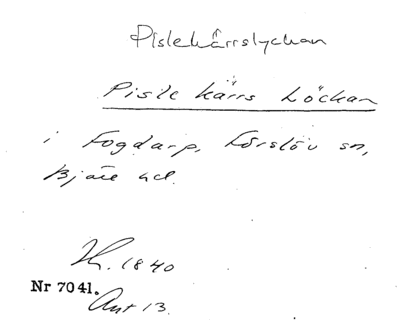 Pislekärrslyckan
Pisle kärrs Löckan
i Fogdarp, Förslöv sn,
Bjäre hd.
H. 1840
Nr 7041.
Ant 13.